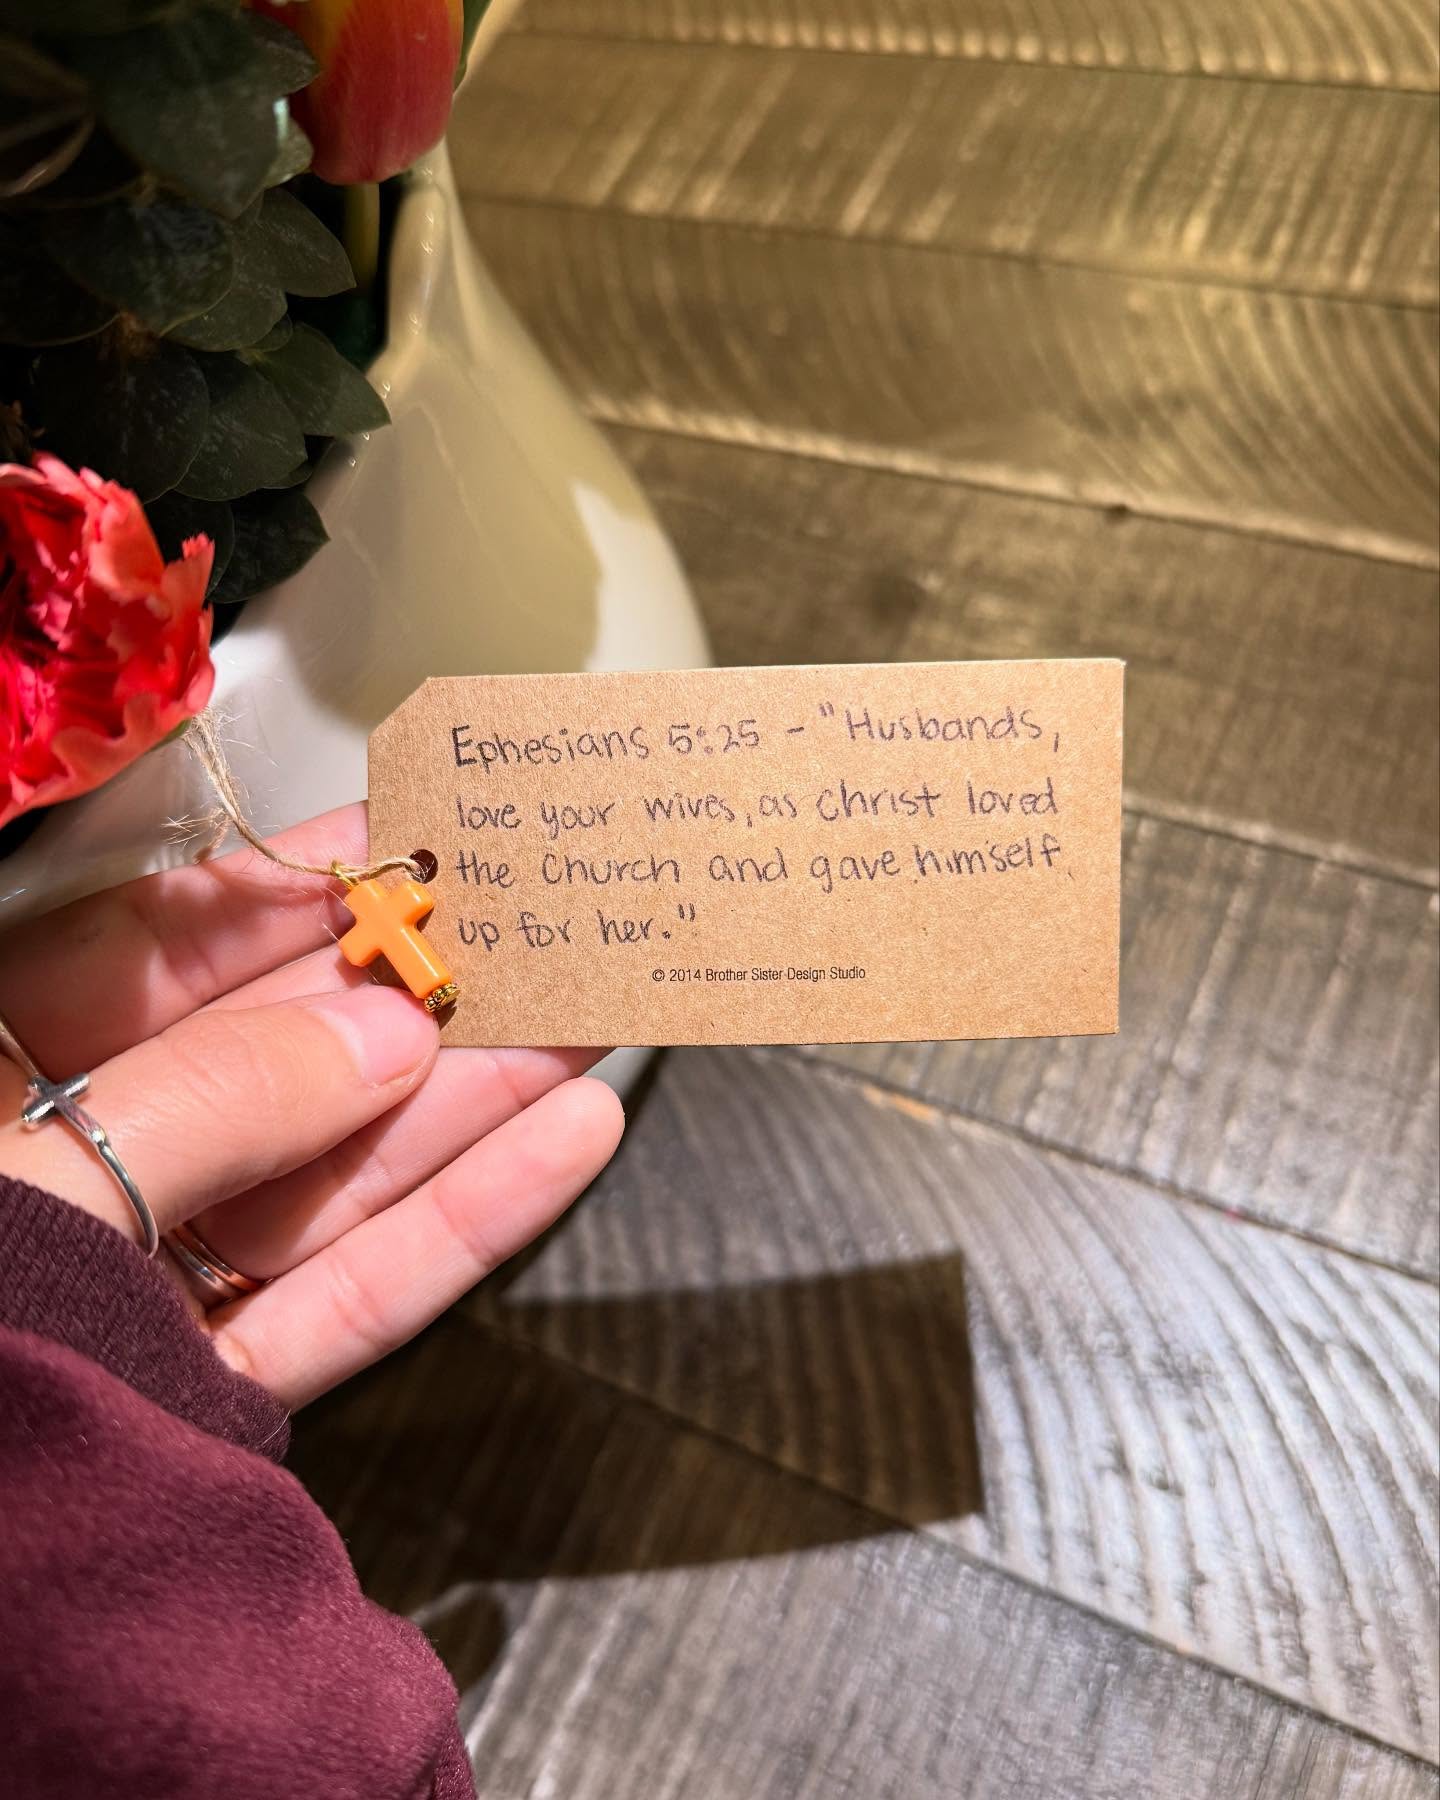 Ephesians 5:25 - "Husbands,
love your wives, as Christ loved
the Church and gave himself
up for her."
© 2014 Brother Sister Design Studio